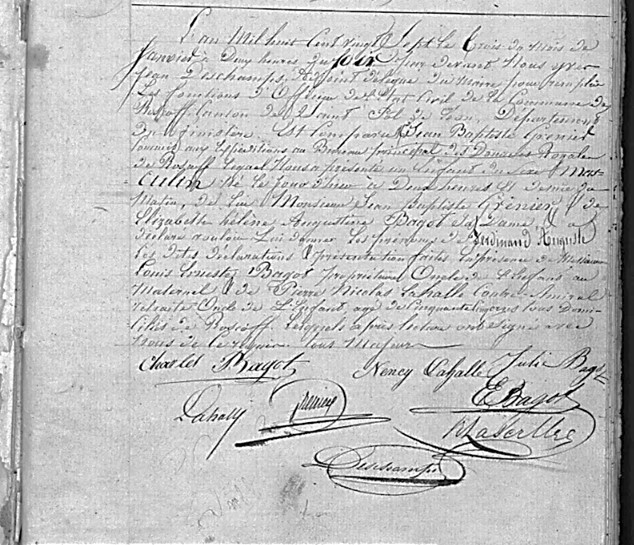 L'an Mil huit Cent vingt Sept le Trois du Mois de
Janvier à Deux heures du Soir Par devant Nous
jean Deschamps, adjoint délégué du Maire pour remplir
Les fonctions d'Officier de l'Etat Civil de la Commune de
Roscoff Canton de Saint Pol de Léon, Département
du finistère, Est Comparu Jean Baptiste Grenier
aux Expéditions au Bureau principal des Douanes Royales
de Roscoff Lequel Nous a présenté un Enfant du Sexe Mas-
culin Né le jour d'hier à Deux heures et demie du
Matin, de lui Monsieur Jean Baptiste Grenier & de
Elizabeth hélène Augustine Bagot Sa Dame & a
Déclaré vouloir Lui donner Les prénoms de Ferdinand Auguste
Les dites déclarations & présentation faites En présence de Messieurs
Louis Bagot propriétaire Oncle de L'Enfant au
Maternel & de Pierre Nicolas Lahalle Contre-Amiral
retraité Oncle de L'Enfant, agé de Cinquante tous Domi-
ciliés de Roscoff Lesquels après lecture ont signé avec
Nous de le tous Majeurs
Charles Bagot Nency Lahalle Julie Bagot
Lahalle Grenier E Bagot
Deschamps